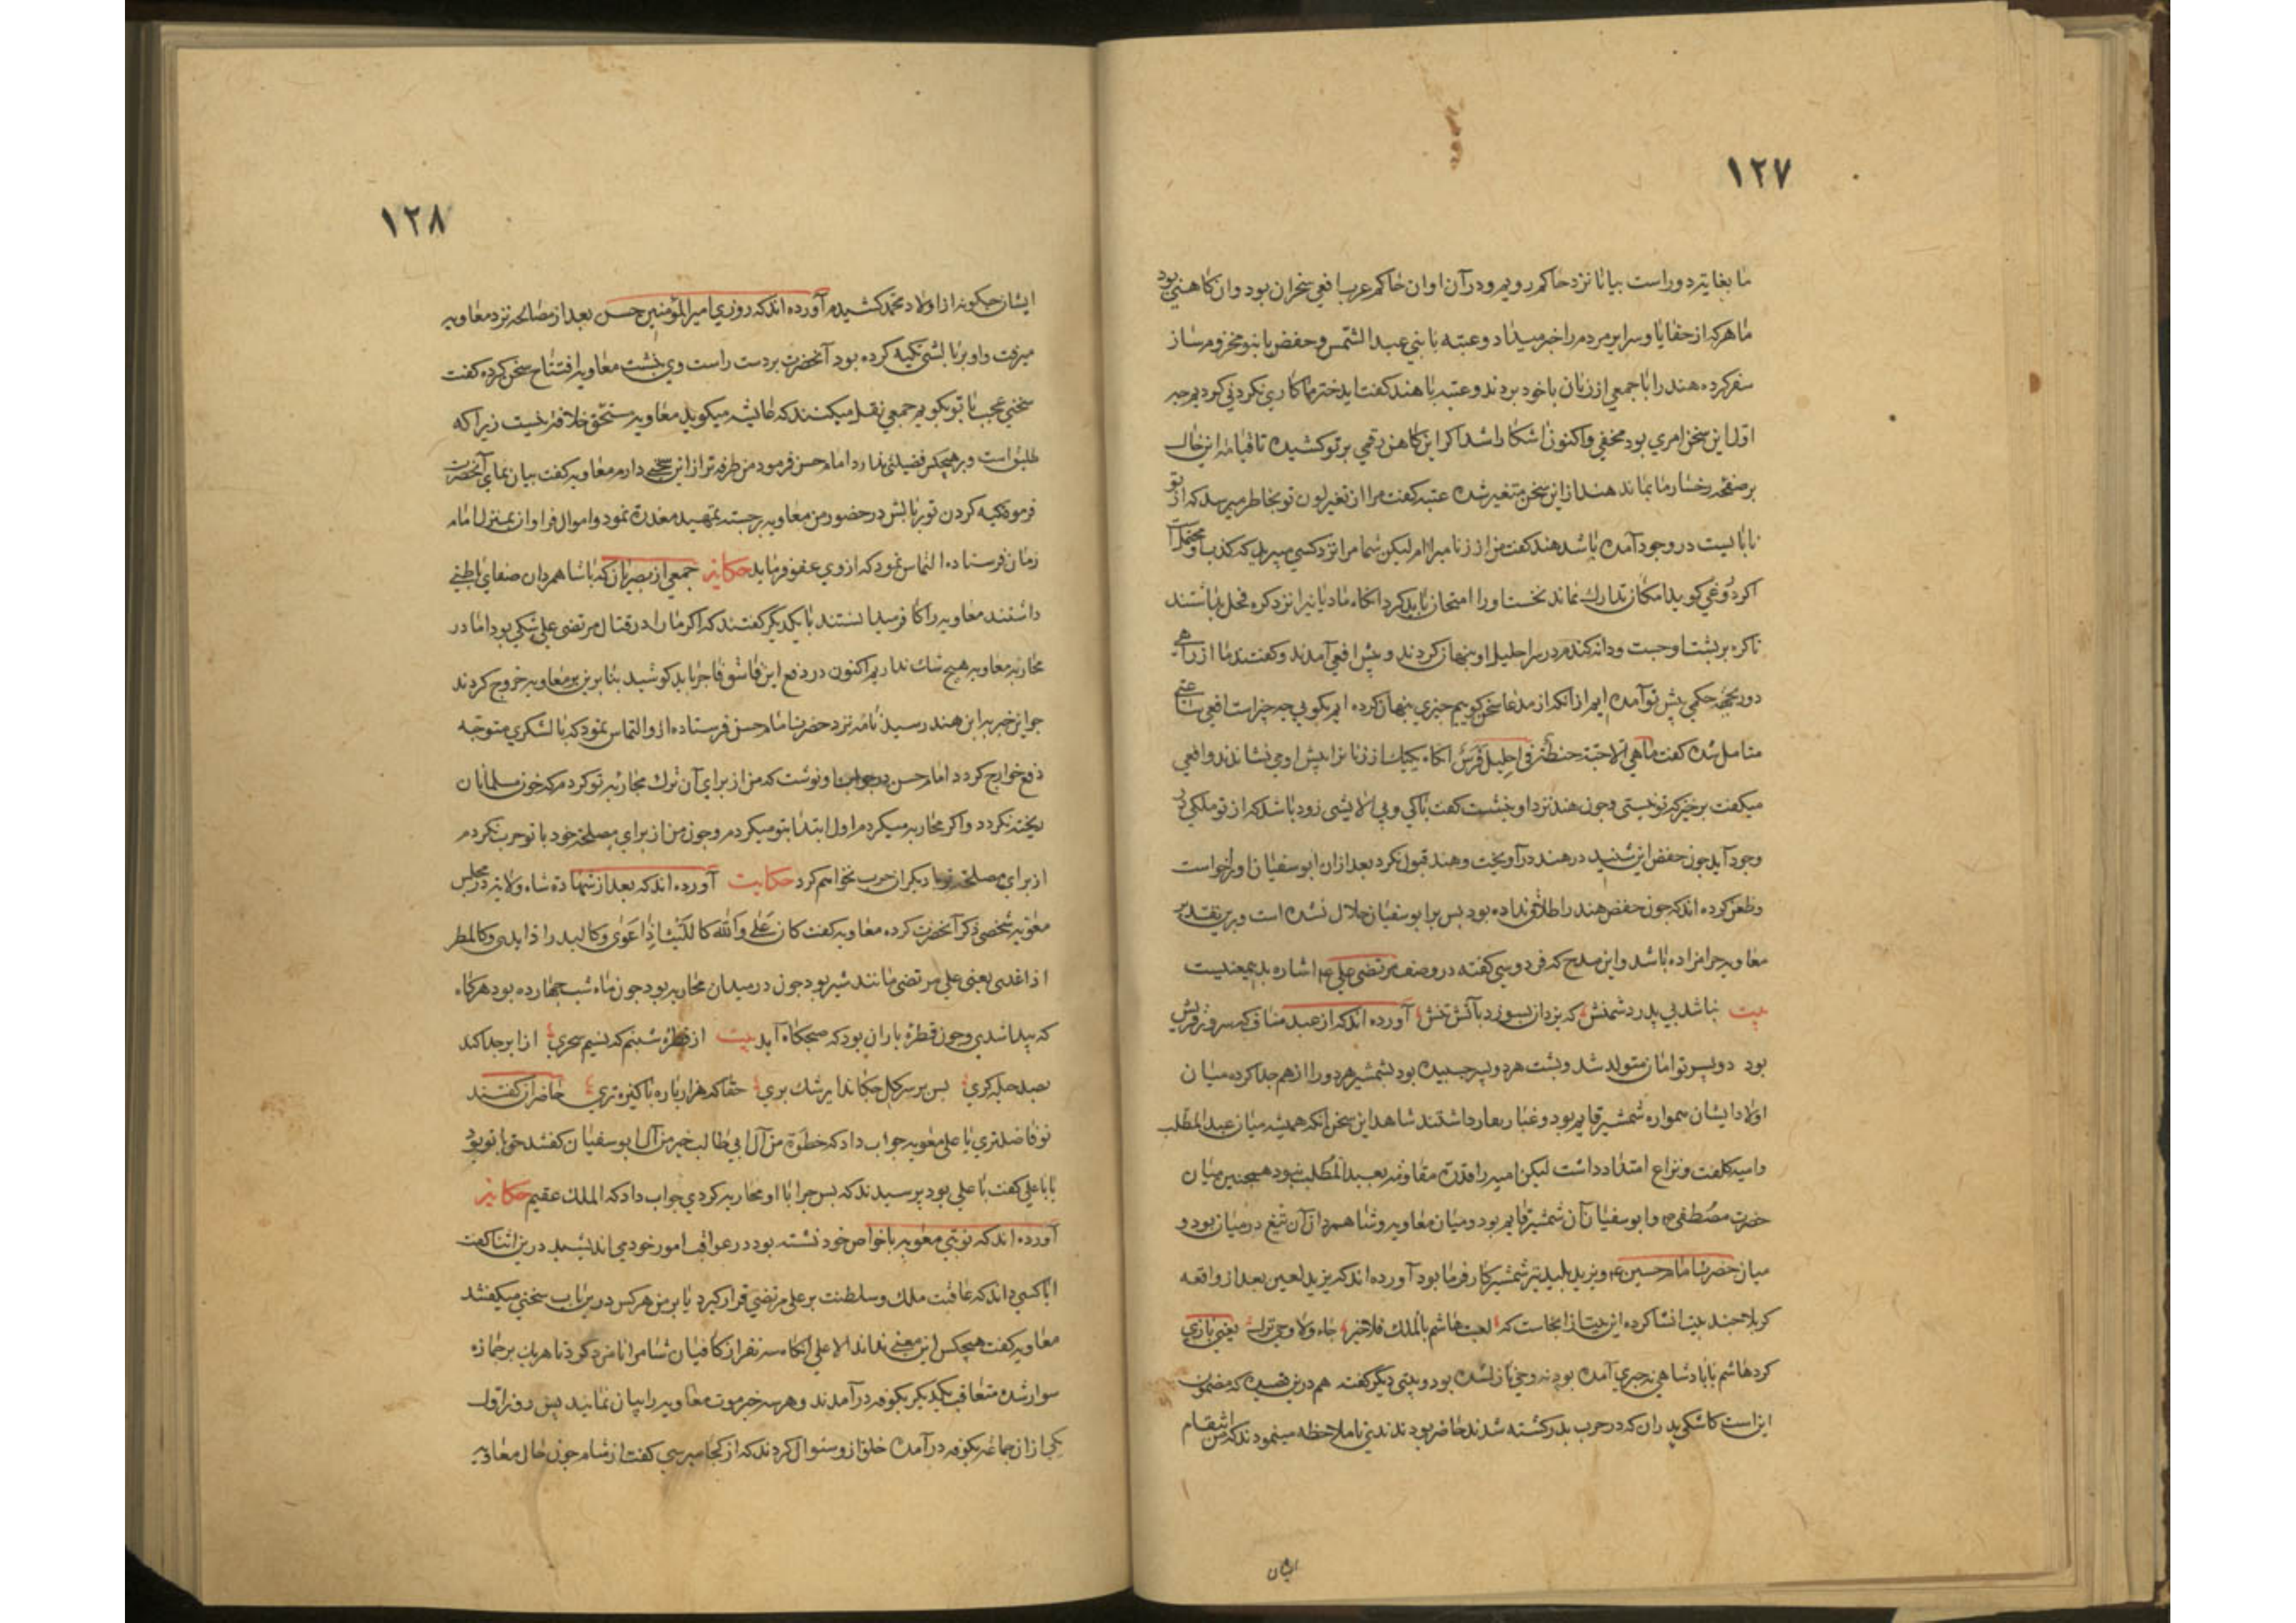 ١٢٧
ما بغایتر دوراست بیا تا نزد حاکم رویم و درآن اوان حاکم عرب افعی نجران بود وان کاهنی بود
ما هرکه از خفایا و سرایر مردم را خبر میداد و عتبه با بنی عبد الشمس و حفض با بنو مخزوم ساز
سفر کرده هند را با جمعی از زنان با خود بردند و عتبه با هند کفت ای دختر ما کاری نکردنی کردیم چه
اول این سخن امری بود مخفی و اکنون اشکارا شد اکر این کاهن رقمی بر تو کشیده تا قیامة این خال
بر صفحه رخسار ما بماند هند از این سخن متغیر شده عتبه کفت مرا از تغیر لون تو بخاطر میرسد که از تو
نابایست در وجود آمده باشد هند کفت من از زنا مبرا ام لیکن شما مرا نزد کسی میبرید که کذب او محتمل است
اکر دروغی کوید امکان تدارك نماند نخست او را امتحان باید کرد انکاه مادیانیرا نزد کره فحل بداشتند
تا کره بر پشت او جست و دانه کندم در سر احلیل او پنهان کردند و پیش افعی آمدند و کفتند ما از راهی
دور بجهة حکمی پیش تو آمده ایم از انکه از مدعا سخن کوییم چیزی پنهان کرده ایم بکویی چه چیز است افعی ساعتی
متامل شده کفت ما هی الا حبة حنطة فی احلیل فرس انکاه یکیك از زنانرا پیش او می نشاندند و افعی
میکفت برخیز که تو نیستی و چون هند نزد او بنشست کفت پاکی و بی آلایشی زود باشد که از تو ملکی در
وجود آید چون حفض این شنید در هند در آویخت و هند قبول نکرد بعد از ان ابو سفیان او را خواست
و طعن کرده اند که چون حفض هند را طلاق نداده بود پس بر ابو سفیان حلال نشده است و برین تقدیر
معاویه حرامزاده باشد و این مدح که فردوسی کفته در وصف مرتضی علی ع م اشاره بدیمعنیست
بیت نباشد بی پدر دشمنش که یزدان بسوزد بآتش تنش آورده اند که از عبد مناف که سرور قریش
بود دو پسر توامان متولد شد و پشت هر دو بهم چسبیده بود بشمشیر هر دو را از هم جدا کرده میان
اولاد ایشان همواره شمشیر قایم بود و غبار بعار داشتند شاهد این سخن انکه همیشه میان عبد المطلب
و امیه کلفت و نزاع امتداد داشت لیکن امیه را قدرة مقاومة بعبد المطلب نبود همچنین میان
حضرت مصطفی ص و ابو سفیان آن شمشیر قایم بود و میان معاویه و شاهمردان آن تیغ در میان بود و
میان حضرت امام حسین ع م و یزید پلید تیر شمشیر کار فرما بود آورده اند که یزید لعین بعد از واقعه
کربلا چند بیت انشا کرده این بیت از انجاست که لعبت هاشم بالملك فلا خبر جاء ولا وحی نزل یعنی بازی
کرد هاشم با پادشاهی نه خبری آمده بود نه وحی نازل شده بود و بیتی دیکر کفته هم درین قصیده که مضمون
این است کاشکی پدران که در حرب بدر کشته شدند حاضر بودندندی تا ملاحظه مینمودند که من انتقام
ایشان
١٢٨
ایشان چکونه از اولاد محمد کشیدم آورده اند که روزی امیر المؤمنین حسن بعد از مصالحه نزد معاویه
میرفت و او بر بالشی تکیه کرده بود آنحضرت بر دست راست وی بنشست معاویه افتتاح سخن کرده کفت
سخنی عجب با تو بکویم جمعی نقل میکنند که عایشه میکوید معاویه مستحق خلافة نیست زیرا که
طلیق است و بر هیچکس فضیلتی ندارد امام حسن فرمود من طرفه تر از این سخنی دارم معاویه کفت بیان نمای آنحضرت
فرمود تکیه کردن تو بر بالش در حضور من معاویه برجسته تمهید معذرة نمود و اموال فراوان بمنزل امام
زمان فرستاده التماس نمود که از وی عفو فرماید حکایة جمعی از بصریان که با شاهمردان صفای باطنی
داشتند معاویه را کافر میدانستند با یکدیکر کفتند که اکر ما را در قتال مرتضی علی شکی بود اما در
محاربه معاویه هیچ شك نداریم اکنون در دفع این فاسق فاجر باید کوشید بنا برین بر معاویه خروج کردند
چو این خبر به ابن هند رسید نامه نزد حضرت امام حسن فرستاده از و التماس نمود که با لشکری متوجه
دفع خوارج کردد امام حسن در جواب او نوشت که من از برای آن ترك محاربه تو کردم که خون مسلمانان
ریخته نکردد و اکر محاربه میکردم اول ابتدا بتو میکردم و چون من از برای مصلحة خود با تو حرب نکردم
از برای مصلحة تو با دیکران حرب نخواهم کرد حکایت آورده اند که بعد از شهادة شاه ولایة در مجلس
معویه شخصی ذکر آنحضرت کرده معاویه کفت کان علی والله کاللیث اذا عوی و کالبدر اذا بدی و کالمطر
اذا غدی یعنی علی مرتضی مانند شیر بود چون در میدان محاربه بود چون ماه شب چهارده بود هرکاه
که پیدا شدی و چون قطرۀ باران بود که صبحکاه آید بیت از قطرۀ شبنم که نسیم سحری از ابر جدا کند
بصد حیله کری پس بر سر کل چکاند ای رشك پری حقا که هزار باره پاکیزه تری حاضران کفتند
تو فاضلتری یا علی معویه جواب داد که خطوة من آل ابی طالب خیر من آل ابو سفیان کفتند حق با تو بود
یا با علی کفت با علی بود پرسیدند که پس چرا با او محاربه کردی جواب داد که الملك عقیم حکایة
آورده اند که نوبتی معویه با خواص خود نشسته بود در عواقب امور خود می اندیشید درین اثنا کفت
ایا کسی داند که عاقبت ملك و سلطنت بر علی مرتضی قرار کیرد یا بر من هر کس درین باب سخنی میکفتند
معاویه کفت هیچکس این معنی نداند الا علی انکاه سه نفر از کافیان شام را نامزد کرد تا هر یك بر جمازه
سوار شده متعاقب یکدیکر بکوفه در آمدند و هر سه خبر موت معاویه را بیان نمایند پس روز اول
یکی از ان جماعه بکوفه در آمده خلق از و سئوال کردند که از کجا میرسی کفت از شام چون حال معاویه